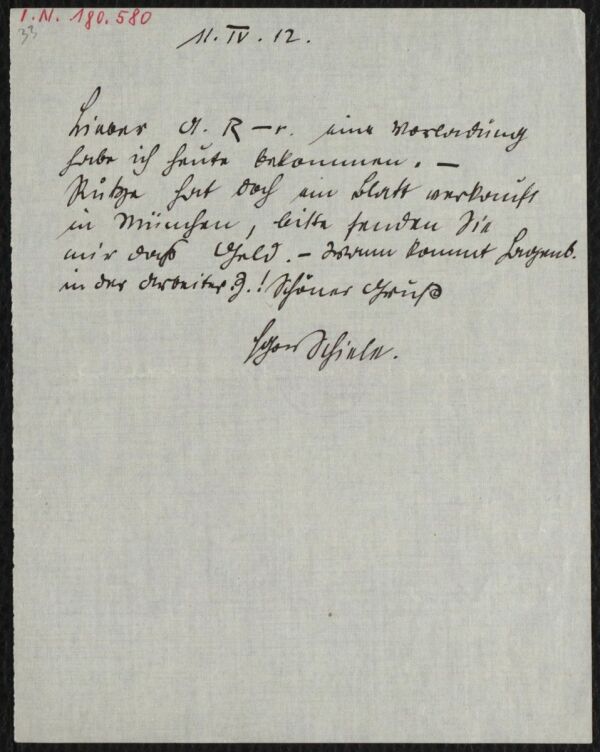 I.N. 180.580
33
11. IV. 12.
Lieber A. R–r. eine Vorladung
habe ich heute bekommen. –
hat doch ein Blatt verkauft
in München, bitte senden Sie
mir daß Geld. – Wann kommt Hagenb.
in der Arbeiter Z.! Schöner Gruß
Egon Schiele.